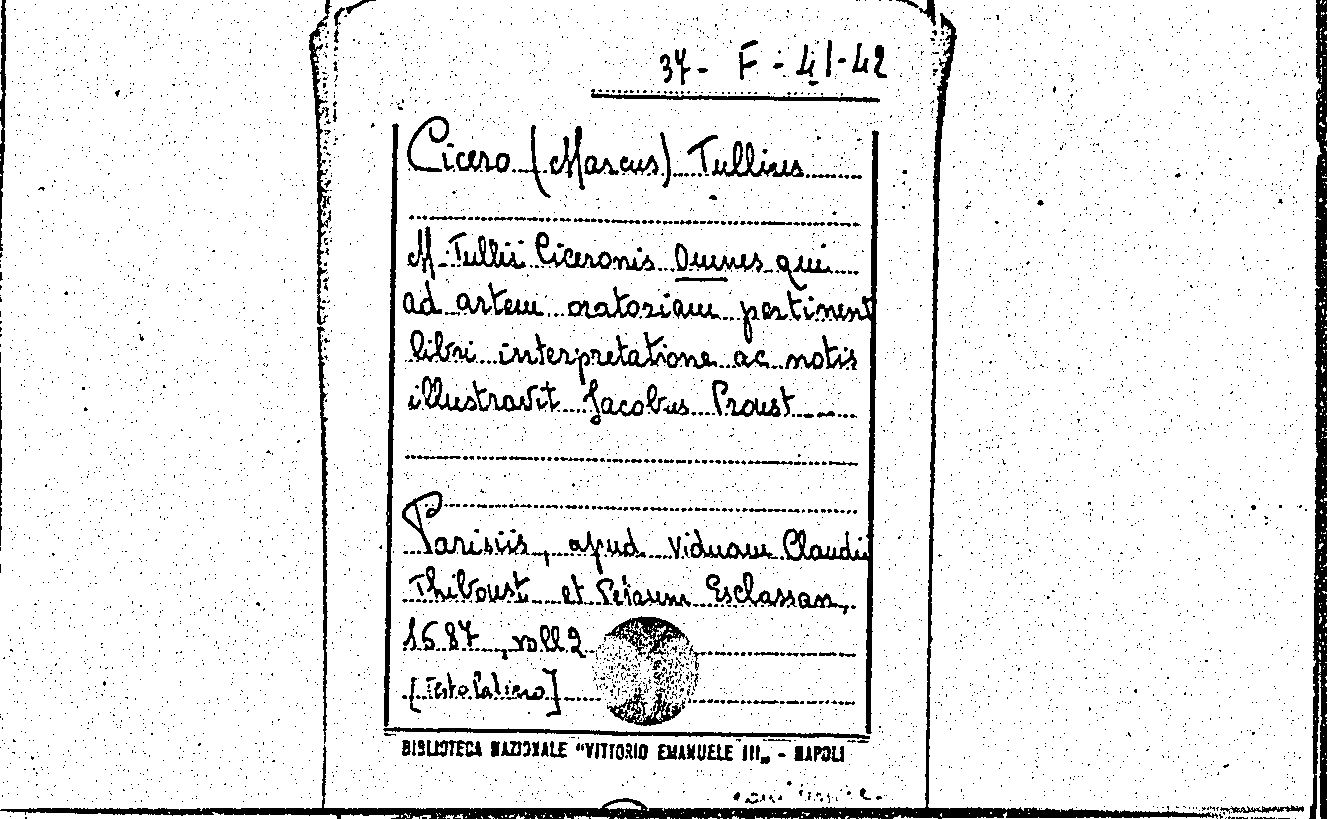 37- F - 41-42
Cicero (Marcus) Tullius
M. Tullii Ciceronis Omnes qui
ad artem oratoriam pertinent
libri interpretatione ac notis
illustravit Jacobus Proust
Parisiis, apud Viduam Claudii
Thiboust et Petrum Esclassan,
1687, voll 2
[Testo Latino]
BIBLIOTECA NAZIONALE "VITTORIO EMANUELE III„ - NAPOLI